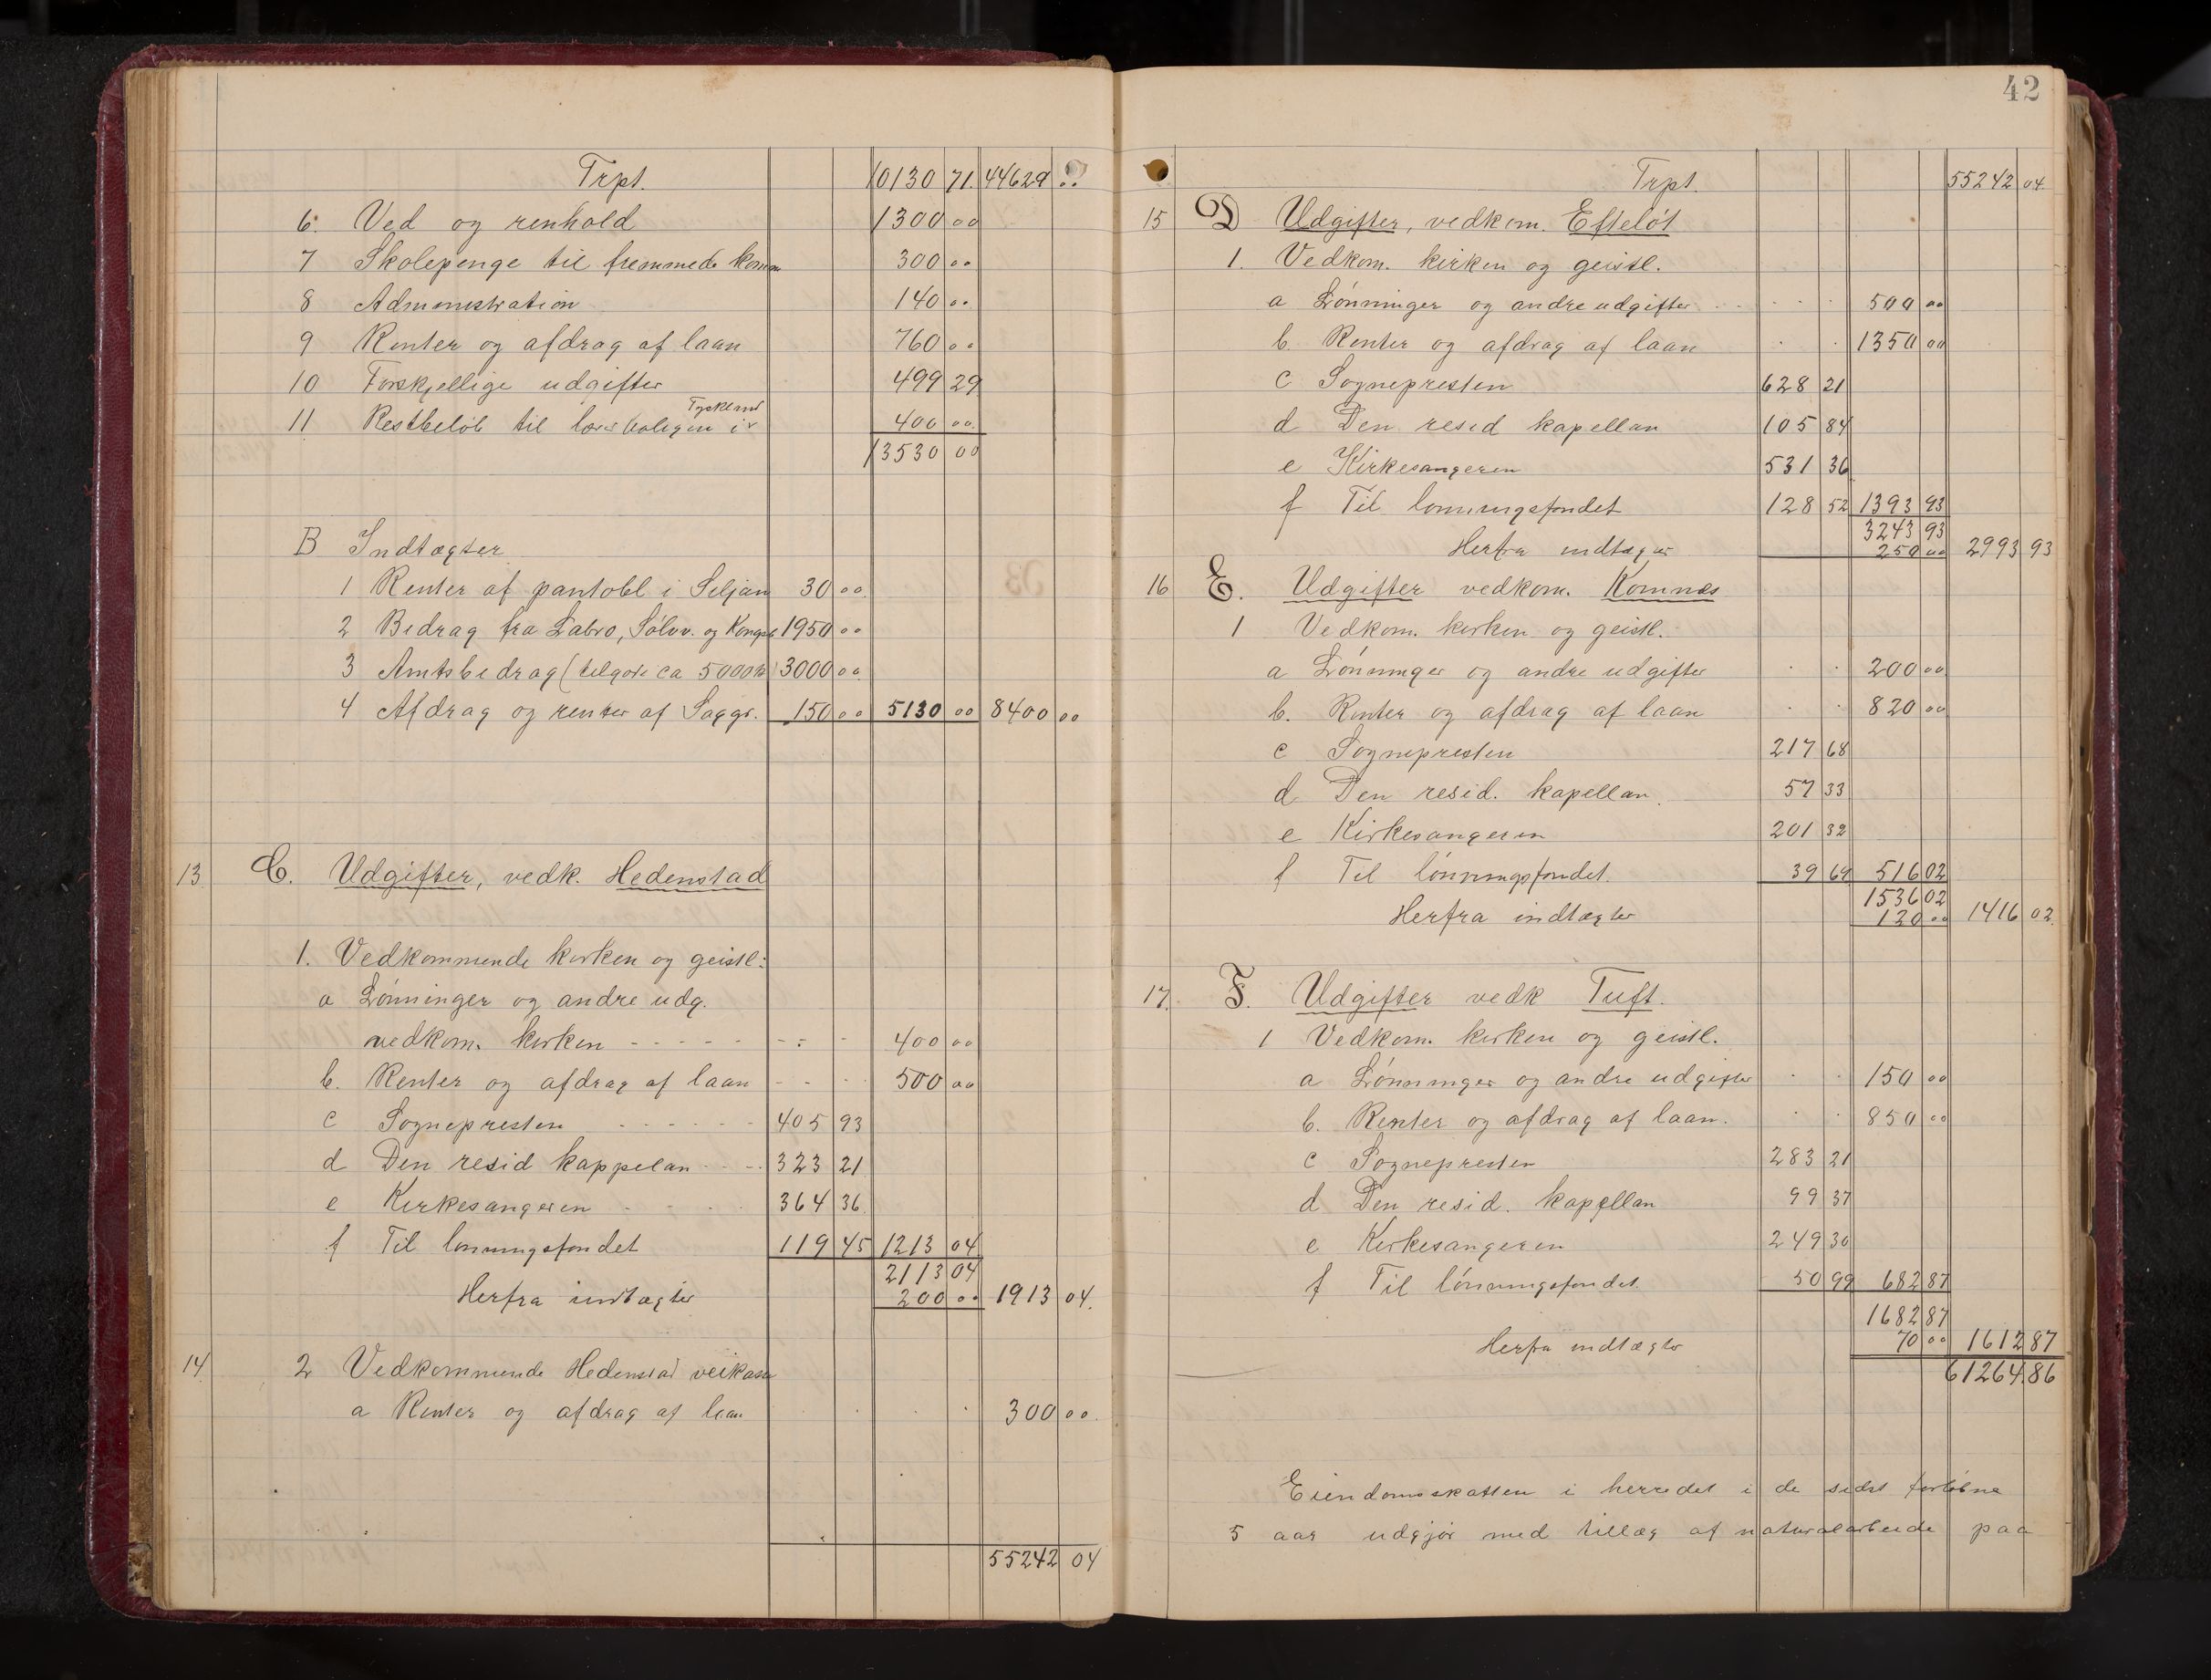 Trpt. 10130 71. 44629 ..
6. Ved og renhold 1300 00
7 Skolepenge til fremmede komm 300 00
8 Administration 140 00
9 Renter og afdrag af laan 760 00
10 Forskjellige udgifter 499 29
Tyskland
11 Restbeløb til lærerboligen i 400 00
13530 00
B Indtægter
1 Renter af pantobl i Seljan 30 00
2 Bidrag fra Labro, Sølvv. og Kongsb 1950 00
3 Amtsbidrag ( ca 5000 kr) 3000 00
4 Afdrag og renter af Saggr. 150 00 5130 00 8400 00
13 C. Udgifter, vedk. Hedenstad
1. Vedkommende kirken og geistl:
a Lønninger og andre udg.
vedkom. kirken - - - - - - - 400 00
b. Renter og afdrag af laan - - - 500 00
c Sognepresten - - - - - - 405 93
d Den resid kappelan - - - 323 21
e Kirkesangeren - - - - 364 36
f Til lønningsfondet 119 45 1213 04
2113 04
Herfra indtægter 200 00 1913 04.
14 2 Vedkommende Hedenstad veikasse
a Renter og afdrag af laan . . . . 300 00
55242 04
42
Trpt. 55242 04
15 D Udgifter, vedkom. Efteløt
1. Vedkom. kirken og geistl.
a Lønninger og andre udgifter . . . . 500 00
b. Renter og afdrag af laan . . 1350 00
c Sognepresten 628 21
d Den resid kapellan 105 84
e Kirkesangeren 531 36
f Til lønningsfondet 128 52 1393 93
3243 93
Herfra indtægter 250 00 2993 93
16 E. Udgifter vedkom. Komnæs
1 Vedkom. kirken og geistl.
a Lønninger og andre udgifter . . 200 00
b. Renter og afdrag af laan . . 820 00
c Sognepresten 217 68
d Den resid. kapellan. 57 33
e Kirkesangeren 201 32
f Til lønningsfondet. 39 69 516 02
1536 02
Herfra indtægter 120 00 1416 02.
17. F. Udgifter vedk Tuft.
1 Vedkom. kirken og geistl.
a Lønninger og andre udgifter . . 150 00
b. Renter og afdrag af laan. . . 850 00
c Sognepresten 283 21
d Den resid. kapellan 99 37
e Kirkesangeren 249 30
f Til lønningsfondet 50 99 682 87
1682 87
Herfra indtægter 70 00 1612 87
61264.86
Eiendomsskatten i herredet i de sidst forløbne
5 aar udgjør med tillæg af naturalarbeide paa